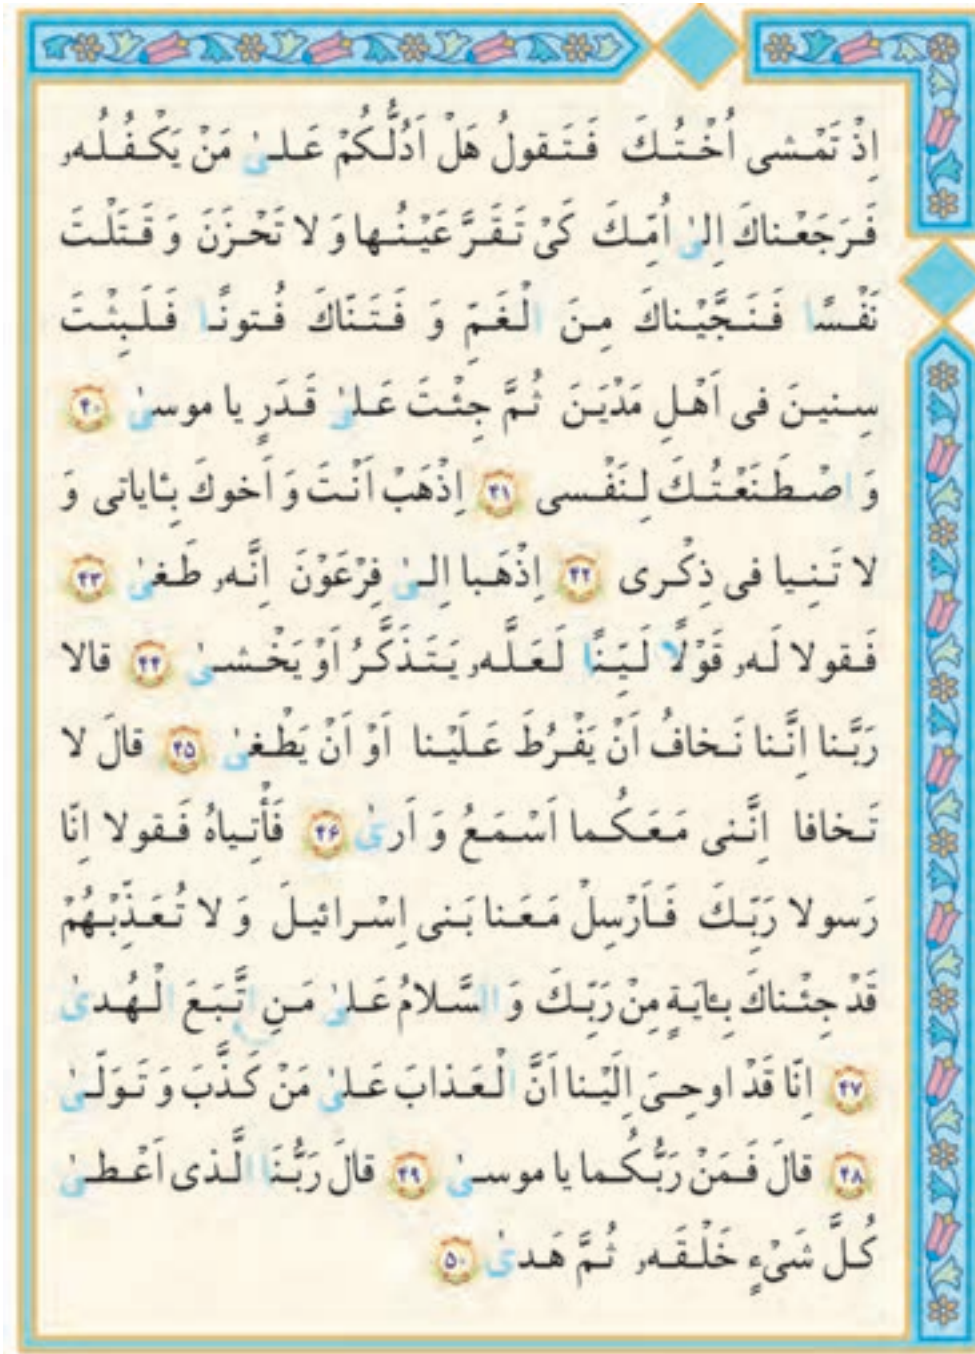 اِذْ تَمْشى اُخْتُكَ فَتَقولُ هَلْ اَدُلُّكُمْ عَلىٰ مَنْ يَكْفُلُهۥ
فَرَجَعْناكَ اِلىٰ اُمِّكَ كَىْ تَقَرَّ عَيْنُها وَ لا تَحْزَنَ وَ قَتَلْتَ
نَفْسًا فَنَجَّيْناكَ مِنَ الْغَمِّ وَ فَتَنّاكَ فُتونًا فَلَبِثْتَ
سِنينَ فى اَهْلِ مَدْيَنَ ثُمَّ جِئْتَ عَلىٰ قَدَرٍ يا موسىٰ ۴۰
وَ اصْطَنَعْتُكَ لِنَفْسى ۴۱ اِذْهَبْ اَنْتَ وَ اَخوكَ بِئاياتى وَ
لا تَنِيا فى ذِكْرى ۴۲ اِذْهَبا اِلىٰ فِرْعَوْنَ اِنَّهۥ طَغىٰ ۴۳
فَقولا لَهۥ قَوْلًا لَيِّنًا لَعَلَّهۥ يَتَذَكَّرُ اَوْ يَخْشىٰ ۴۴ قالا
رَبَّنا اِنَّنا نَخافُ اَنْ يَفْرُطَ عَلَيْنا اَوْ اَنْ يَطْغىٰ ۴۵ قالَ لا
تَخافا اِنَّنى مَعَكُما اَسْمَعُ وَ اَرىٰ ۴۶ فَأْتِياهُ فَقولا اِنّا
رَسولا رَبِّكَ فَاَرْسِلْ مَعَنا بَنى اِسْرائيلَ وَ لا تُعَذِّبْهُمْ
قَدْ جِئْناكَ بِئايَةٍ مِنْ رَبِّكَ وَ السَّلامُ عَلىٰ مَنِ اتَّبَعَ الْهُدىٰ
۴۷ اِنّا قَدْ اوحِىَ اِلَيْنا اَنَّ الْعَذابَ عَلىٰ مَنْ كَذَّبَ وَ تَوَلّىٰ
۴۸ قالَ فَمَنْ رَبُّكُما يا موسىٰ ۴۹ قالَ رَبُّنَا الَّذى اَعْطىٰ
كُلَّ شَىْءٍ خَلْقَهۥ ثُمَّ هَدىٰ ۵۰